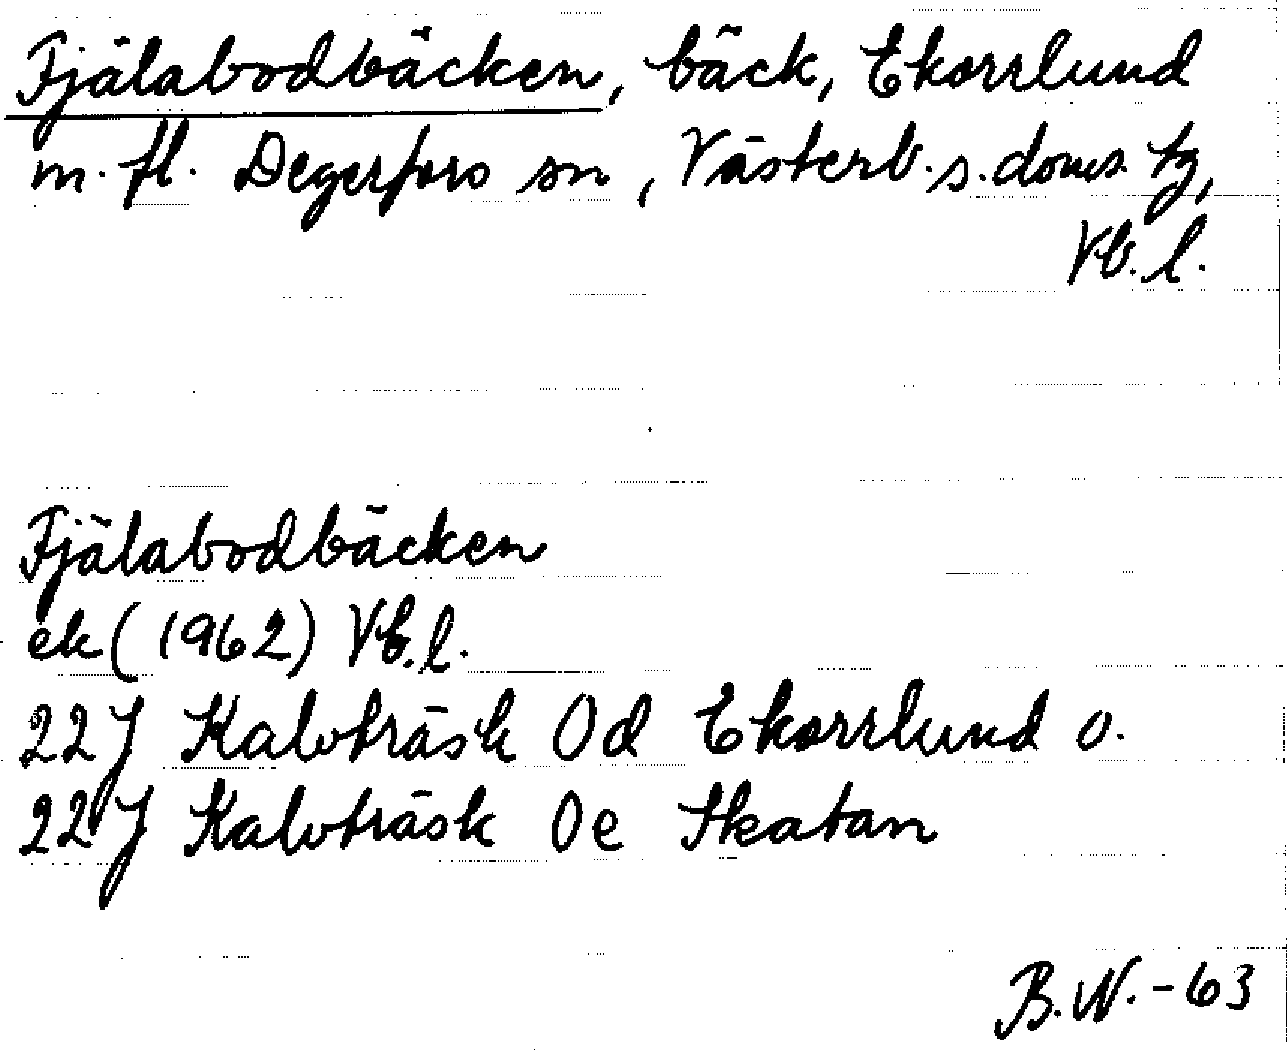 Fjälabodbäcken, bäck, Ekorrlund
m. fl. Degerfors sn, Västerb. s. doms. tg,
Vb. l.
Fjälabodbäcken
ek (1962) Vb. l.
22J Kalvträsk 0d Ekorrlund o.
22J Kalvträsk 0e Skatan
B.W. - 63